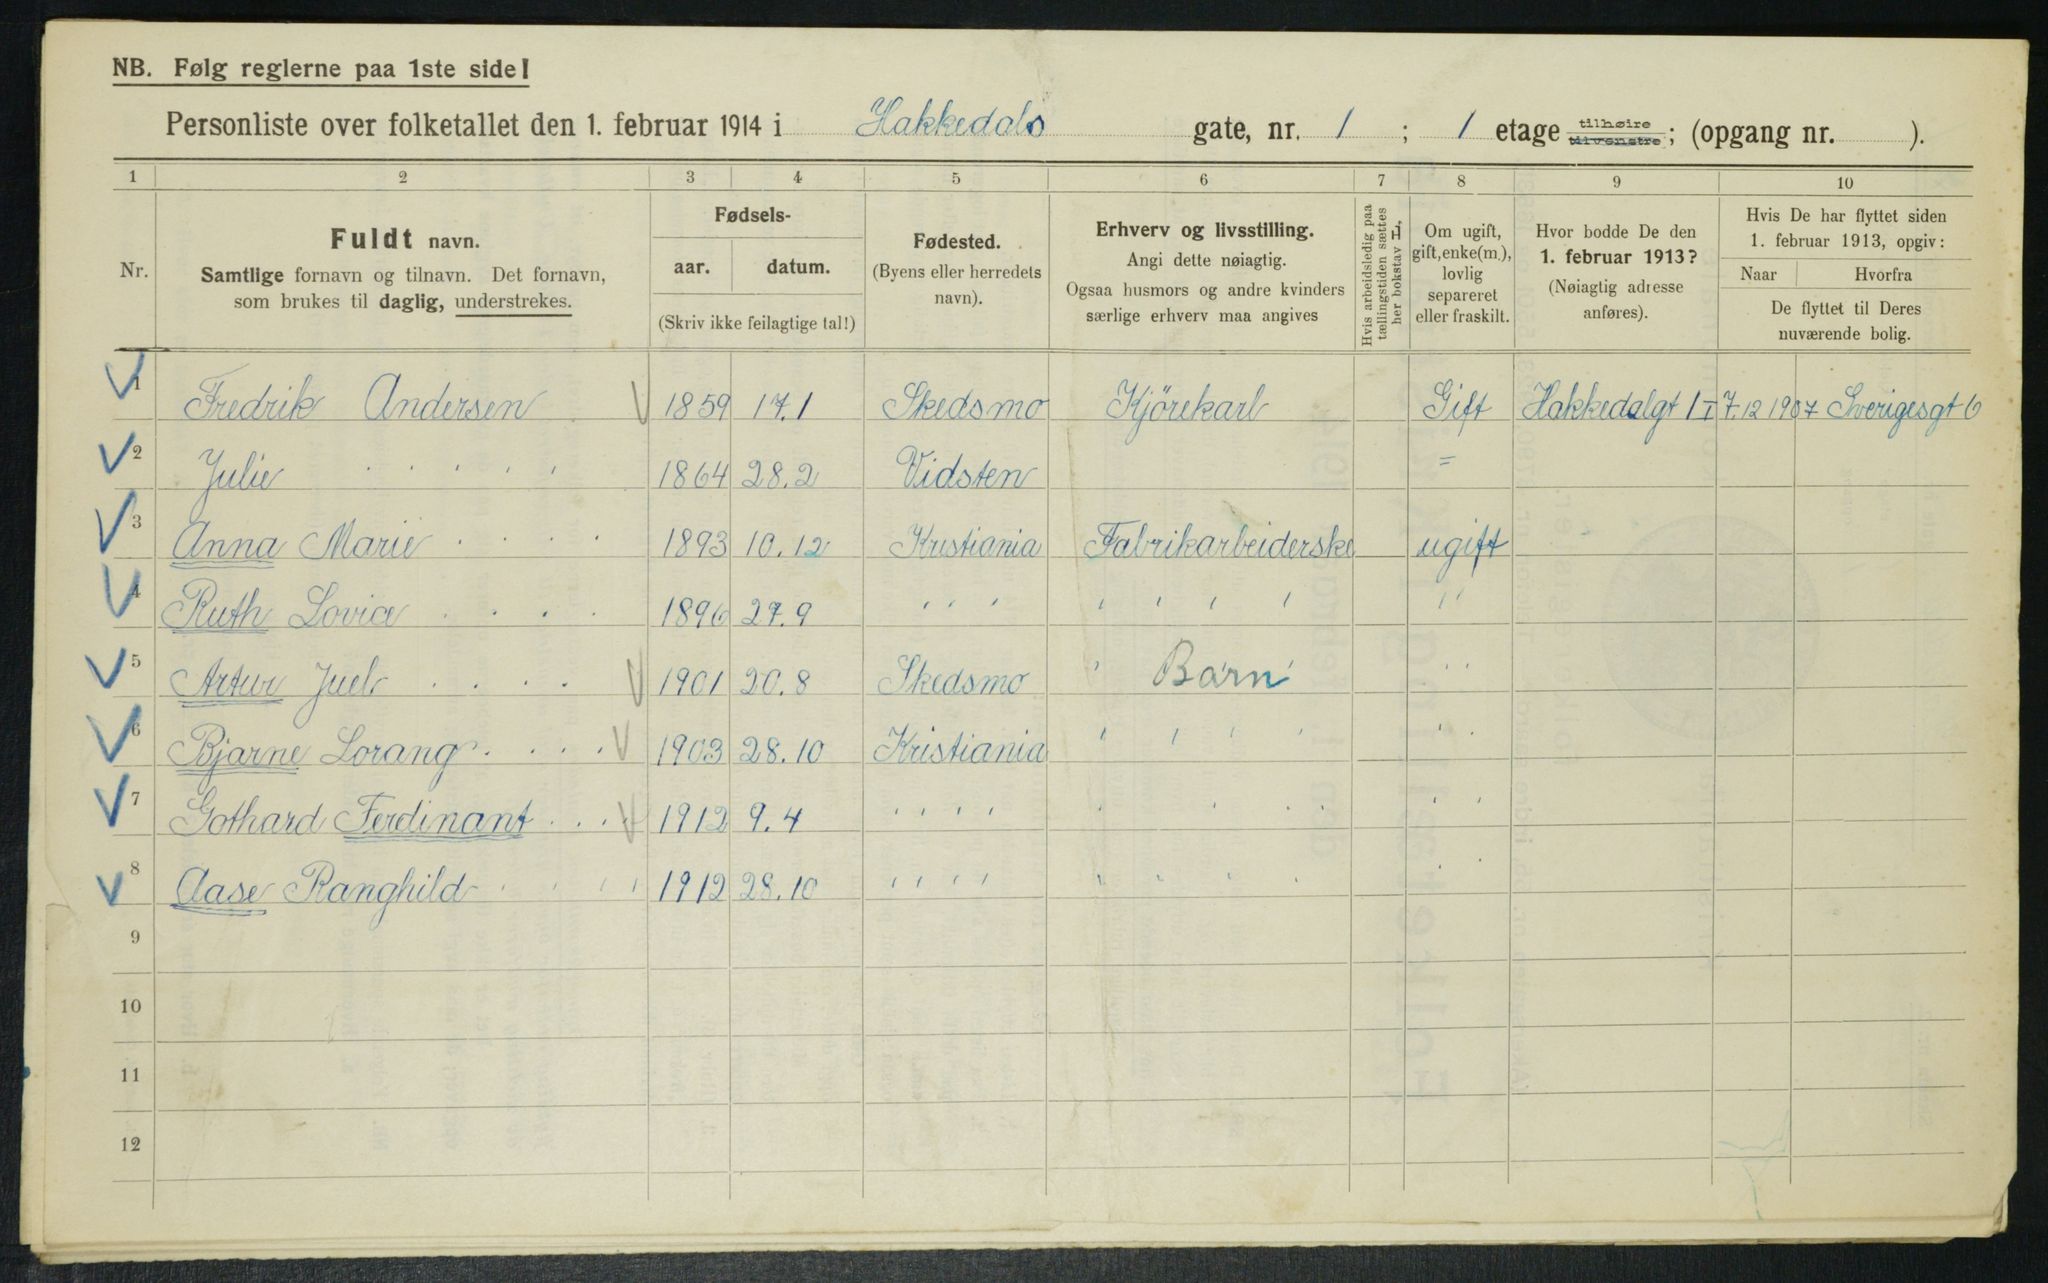 NB. Følg reglerne paa 1ste side!
Personliste over folketallet den 1. februar 1914 i Hakkedals gate, nr. 1 ; 1 etage tilhøire tilvenstre; (opgang nr. ).
1 2 3 4 5 6 7 8 9 10
Nr.
Fuldt navn.
Samtlige fornavn og tilnavn. Det fornavn,
som brukes til daglig, understrekes.
Fødsels-
aar. datum.
(Skriv ikke feilagtige tal!)
Fødested.
(Byens eller herredets
navn).
Erhverv og livsstilling.
Angi dette nøiagtig.
Ogsaa husmors og andre kvinders
særlige erhverv maa angives
Hvis arbeidsledig paa
tællingstiden sættes
her bokstav L,
Om ugift,
gift, enke(m.),
lovlig
separeret
eller fraskilt.
Hvor bodde De den
1. februar 1913?
(Nøiagtig adresse
anføres).
Hvis De har flyttet siden
1. februar 1913, opgiv:
Naar Hvorfra
De flyttet til Deres
nuværende bolig.
1 Fredrik Andersen 1859 17.1 Skedsmo Kjörekarl Gift Hakkedalgt 1 I 7.12 1907 Sverigesgt 6
2 Julie · · · · · 1864 28.2 Vidsten =
3 Anna Marie · · · · 1893 10.12 Kristiania Fabrikarbeiderske ugift
4 Ruth Lovice · · · · 1896 27.9 " " " " " " " " "
5 Artur Juel · · · · 1901 20.8 Skedsmo " Barn " " "
6 Bjarne Lorang · · · · 1903 28.10 Kristiania " " " " " "
7 Gothard Ferdinant · · · · 1912 9.4 " " " " " " " " " "
8 Aase Ranghild · · · · 1912 28.10 " " " " " " " " " "
9
10
11
12